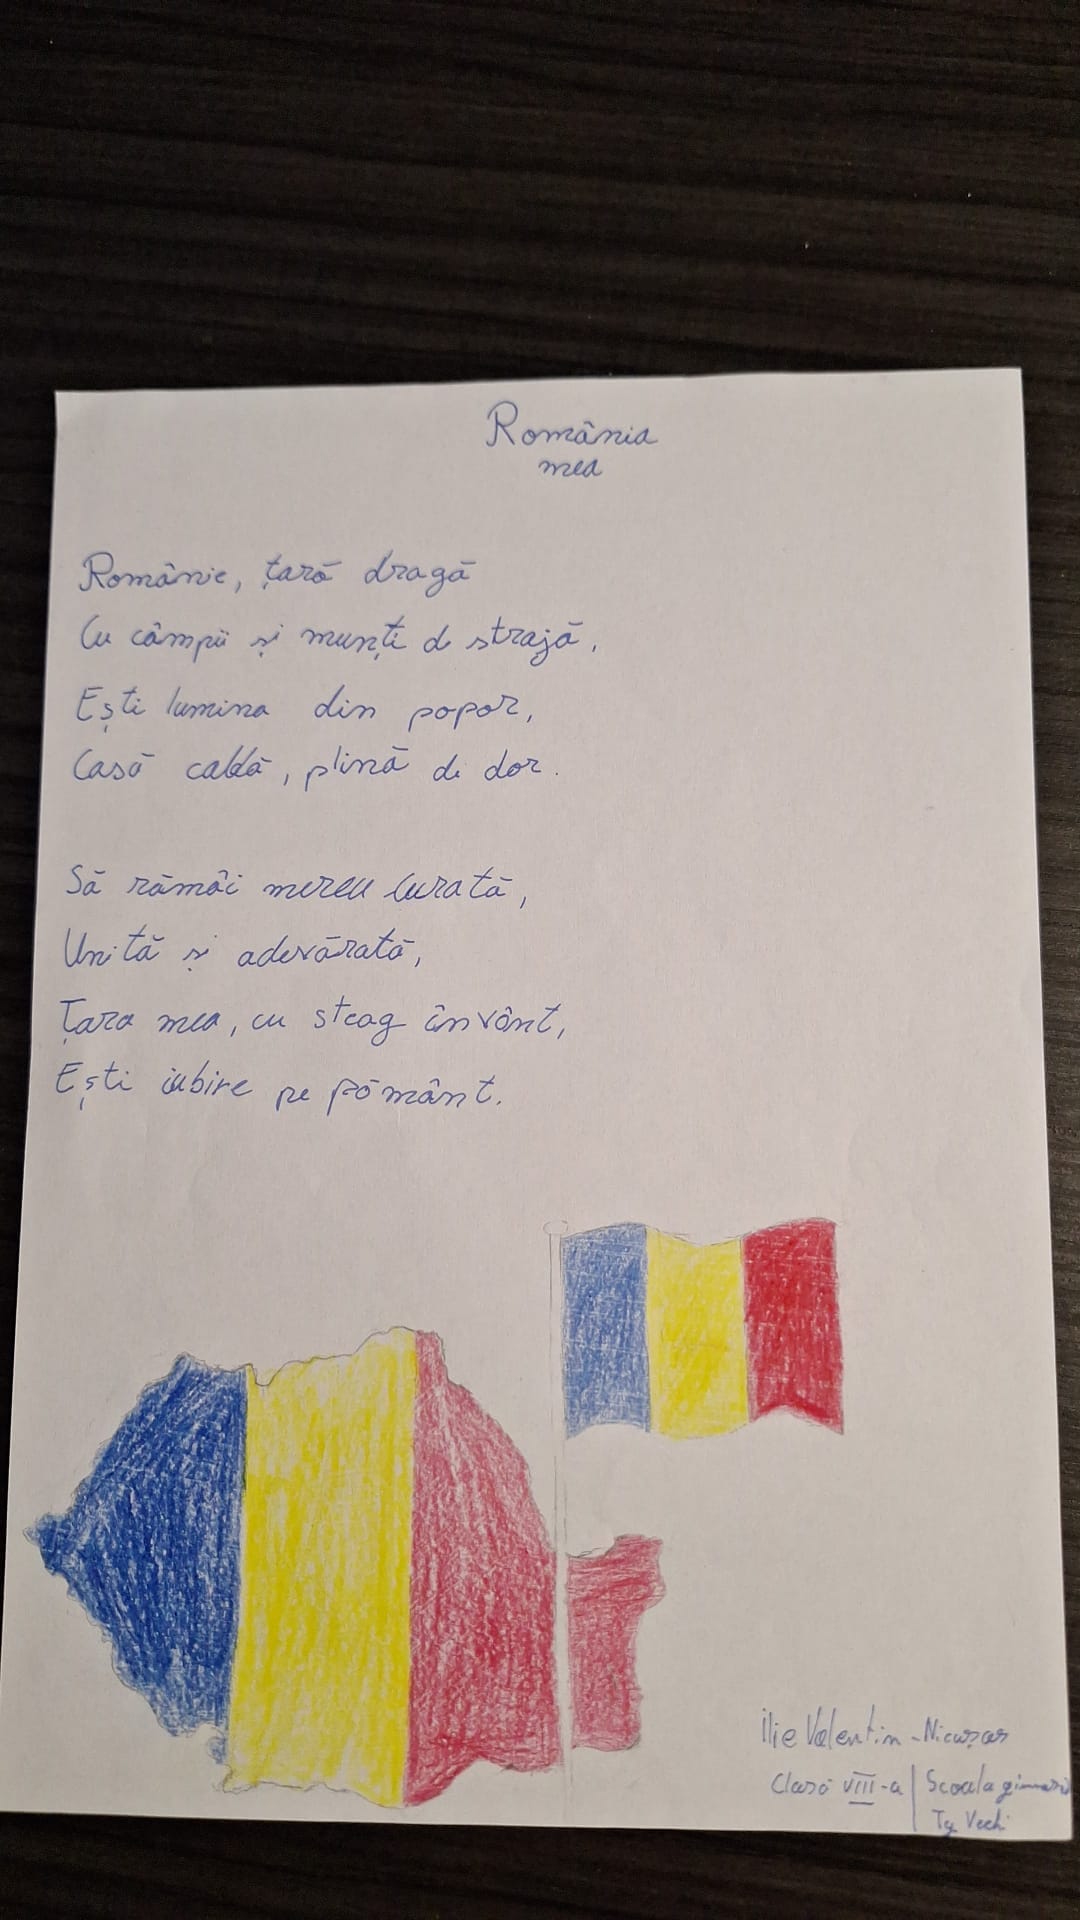 România
mea
Românie, țară dragă
Cu câmpii și munți de strajă,
Ești lumina din popor,
Casă caldă, plină de dor.
Să rămâi mereu curată,
Unită și adevărată,
Țara mea, cu steag în vânt,
Ești iubire pe pământ.
Ilie Valentin-Nicușor
Clasă VIII-a | Scoala
Tg Vechi